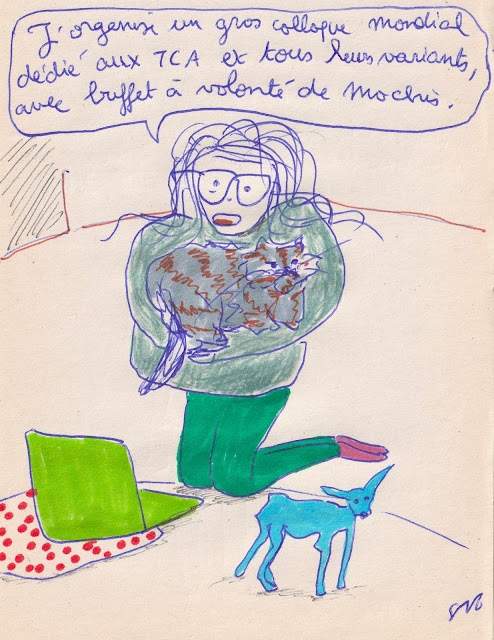 J'organise un gros colloque mondial
dédié aux TCA et tous leurs variants,
avec buffet à volonté de Mochis.